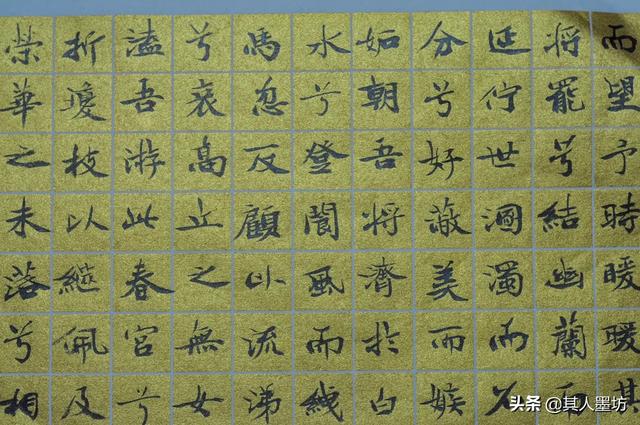 而望予時暖暖其
將罷兮結幽蘭而
延佇世溷濁而不
分兮好蔽美而嫉
妬朝吾將濟於白
水兮登閬風而緤
馬忽反顧以流涕
兮哀高丘之無女
溘吾游此春宮兮
折瓊枝以繼佩及
榮華之未落兮相
头条 @其人墨坊